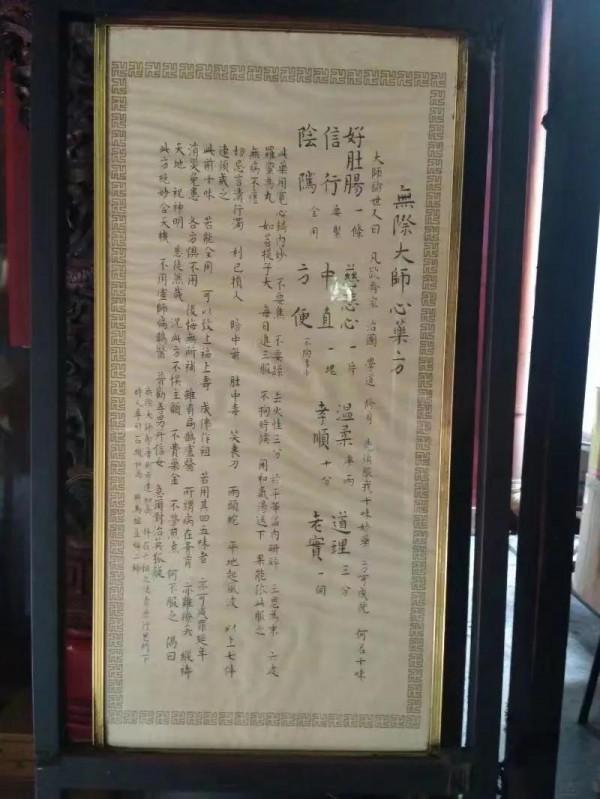 無際大師心藥方
大師諭世人曰 凡欲齊家 治國 學道 修身 先須服我十味妙藥 方可成就 何名十味
好肚腸 一條 慈悲心 一片 溫柔 半兩 道理 三分
信行 要緊 中直 一塊 孝順 十分 老實 一個
陰隲 全用 方便 不拘多少
此藥用寬心鍋內炒 不要焦 不要躁 去火性三分 於平等盆內研碎 三思為末 六波
羅蜜為丸 如菩提子大 每日進三服 不拘時候 用和氣湯送下 果能依此服之
無病不瘥
切忌言清行濁 利己損人 暗中箭 肚中毒 笑裏刀 兩頭蛇 平地起風波 以上七件
速須戒之
此前十味 若能全用 可以致上福上壽 成佛作祖 若用其四五味者 亦可滅罪延年
消災免患 各方俱不用 後悔無所補 雖有扁鵲盧醫 所謂病在膏肓 亦難療矣 縱禱
天地 祝神明 悉徒然哉 況此方不悞主顧 不費藥金 不勞煎煮 何不服之 偈曰
此方絕妙合天機 不用盧師扁鵲醫 普勸善男并信女 急用對治莫狐疑
無際大師